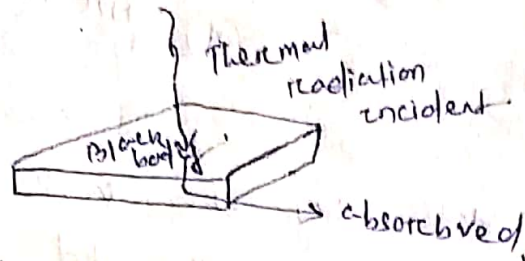 Thermal
radiation
incident
Black
body
absorbved